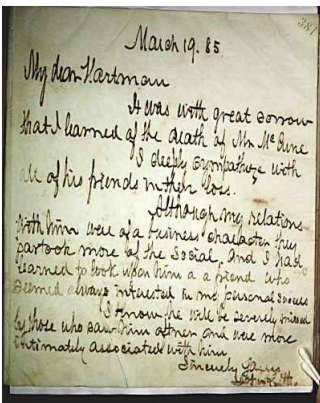 381
March 19. 85.
My dear Hartman
It was with great sorrow
that I learned of the death of Mr Mc
I deeply sympathize with
all of his friends in their loss.
Although my relations
with him were of a business character they
partook more of the social, and I had
learned to look upon him a a friend who
seemed always interested in my personal success
I know he will be severely missed
by those who saw him often and were more
intimately associated with him
Sincerely Yours